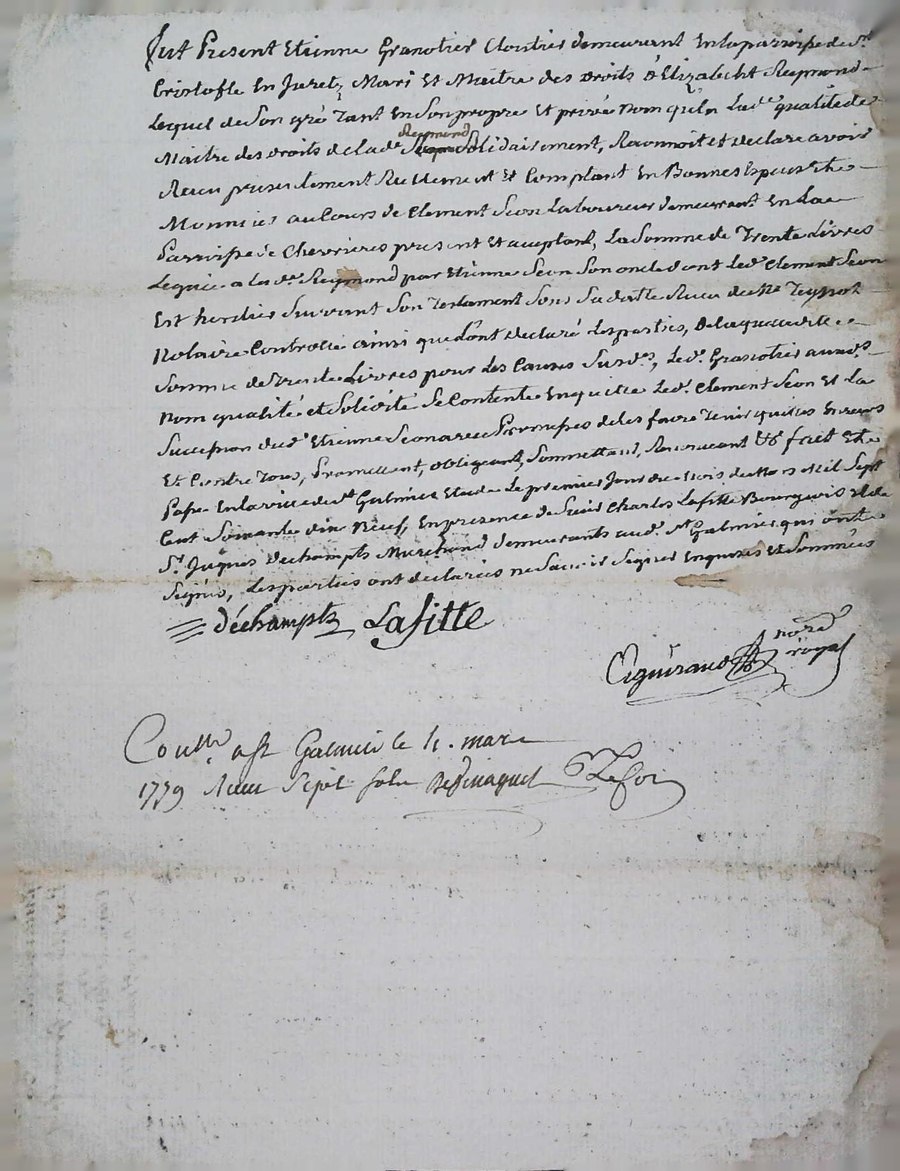 fut Present Etienne Granotier Cloutier demeurant En la parroisse de St
Cristofle En Jaretz, Mari Et Maitre des Droits d'Elizabeht Reymond
Lequel de Son gré Tant En Son propre Et privé nom qu'en Lade qualité de
Reymond
Maitre des droits de lade Solidairement, Reconnoit et declare avoir
Receu presentement Reellement Et Comptant En Bonnes Especes
Monnoies au Cours de Clement Seon Laboureur demeurant En La
Parroisse de Chevrieres present Et aceptant, La Somme de Trente Livres
Leguée a la de Reymond par Etienne Seon Son oncle dont Led. Clement Seon
Est heritier Suivant Son Testament Sous Sa datte Receu de Me Teyssot
Notaire Controllé ainsi que l'ont declaré Les parties, De laquelle
Somme de Trente Livres pour Les Causes Susdes, Led. Granotier auxds
Nom qualité et Solidité Se Contente En quitte Led. Clement Seon Et La
Succession dud. Etienne Seon avec Promesses de les faire Tenir quittes Envers
Et Contre Tous, Promettant, obligeant, Soumettant, Renonceant &c fait Et
Passé En la ville de St Galmier Etude Le premier Jour du Mois de Mars Mil Sept
Cent Soixante dix Neuf, En presence de Sieur Charles Lafitte Bourgeois Et de
Sr. Jaques Dechampts Marchand demeurants aud. St. Galmier qui ont
Signés, Les parties ont declarées ne Savoir Signer Enquises Et Sommées
déchampts Lafitte
nore
royal
Coutlé. a St Galmier le 11. mars
1779 Receu Sept sols